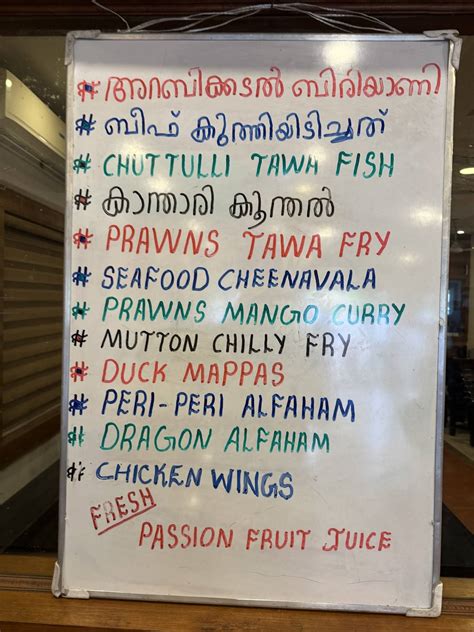 # അറബിക്കടൽ ബിരിയാണി
# ബീഫ് കുത്തിയിടിച്ചത്
# CHUTTULLI TAWA FISH
# കാന്താരി കൂന്തൽ
# PRAWNS TAWA FRY
# SEAFOOD CHEENAVALA
# PRAWNS MANGO CURRY
# MUTTON CHILLY FRY
# DUCK MAPPAS
# PERI-PERI ALFAHAM
# DRAGON ALFAHAM
# CHICKEN WINGS
FRESH
PASSION FRUIT JUICE